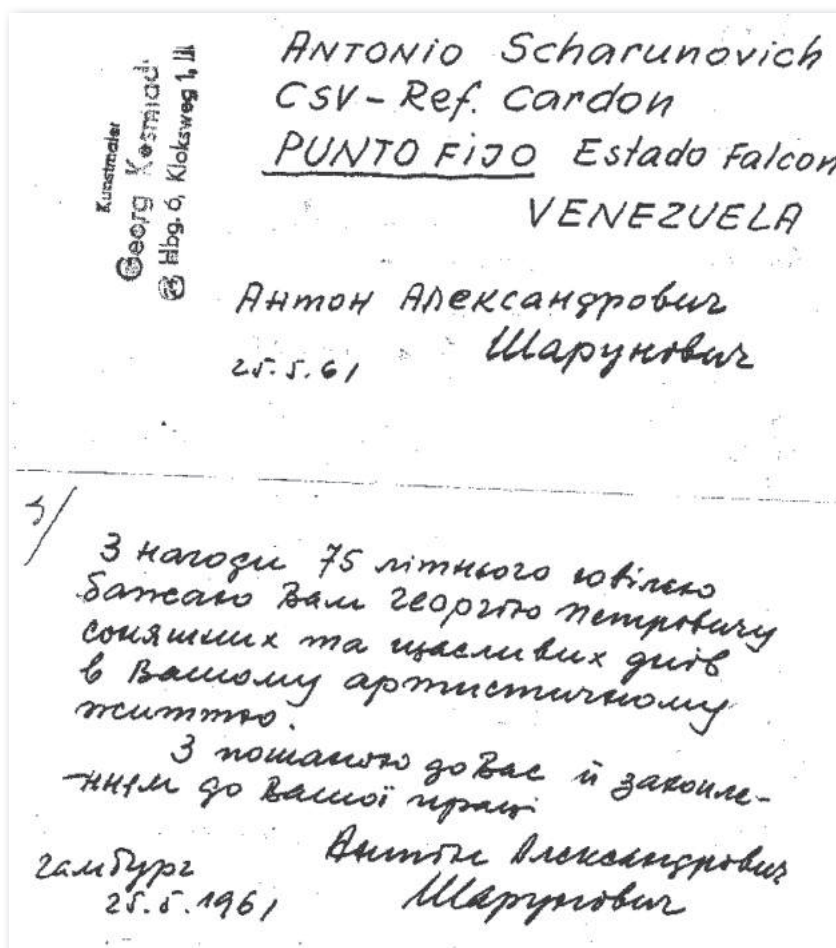 Kunstmaler
Georg Kosmiadi
Hbg. 6, Kloksweg 1, III
ANTONIO Scharunovich
CSV - Ref. Cardon
PUNTO FIJO Estado Falcon
VENEZUELA
Антон Александрович
Шарунович
25.5.61
З нагоди 75 літнього ювілею
бажаю Вам Георгію Петровичу
соняшних та щасливих днів
в Вашому артистичному
життю.
З пошаною до Вас й захопле-
-нням до Вашої праці
Антон Александрович
Шарунович
Гамбург
25.5.1961